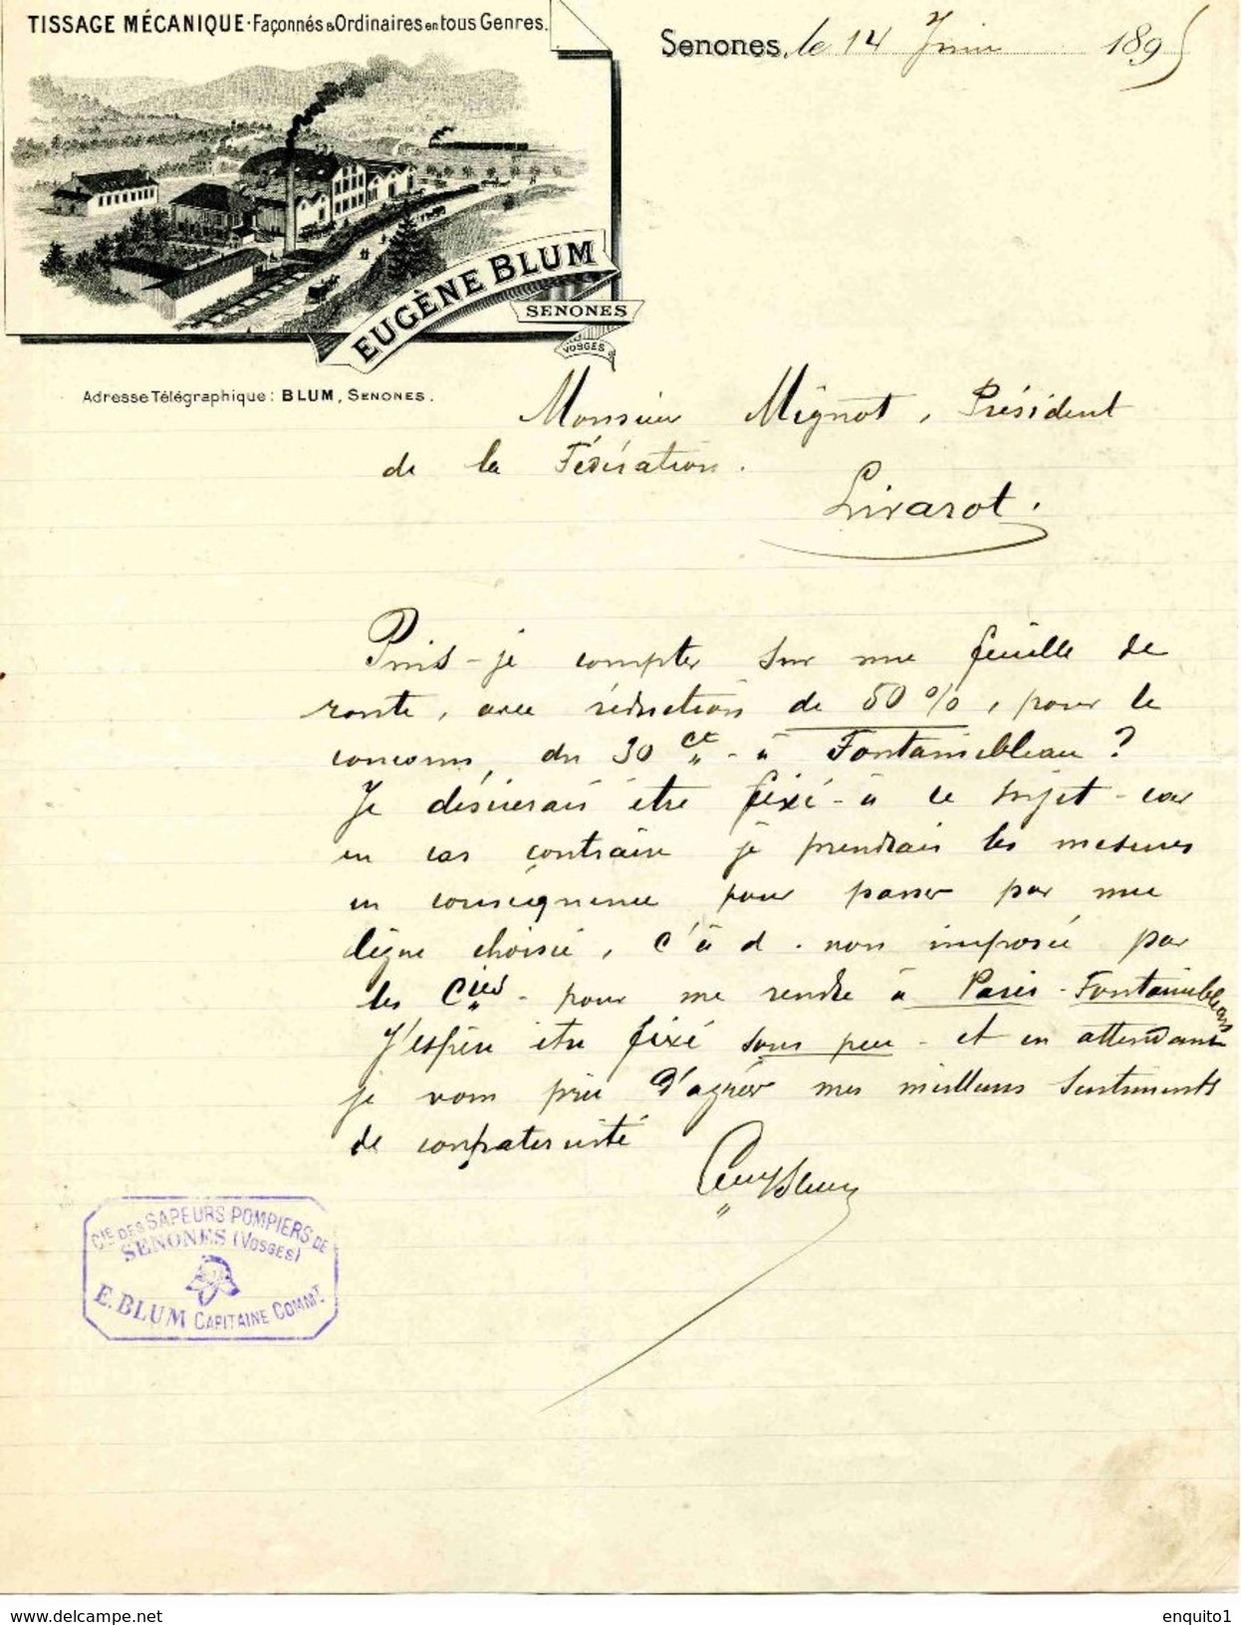 TISSAGE MÉCANIQUE · Façonnés & Ordinaires en tous Genres.
Senones, le 14 Juin 1895
EUGÈNE BLUM
SENONES
VOSGES
Adresse Télégraphique : BLUM, SENONES.
Monsieur Mignot, Président
de la Fédération.
Livarot.
Puis-je compter sur une feuille de
route, avec réduction de 50 %, pour le
concours, du 30 ct - à Fontainebleau ?
Je désirerais être fixé - à ce sujet - car
en cas contraire je prendrais les mesures
en conséquence pour passer par une
ligne choisie, c'à d. non imposée par
les Cies - pour me rendre à Paris - Fontainebleau
J'espère être fixé sous peu - et en attendant
je vous prie d'agréer mes meilleurs sentiments
de confraternité
EugBlum
CIE DES SAPEURS POMPIERS DE
SENONES (VOSGES)
E. BLUM CAPITAINE COMMT.
www.delcampe.net
enquito1